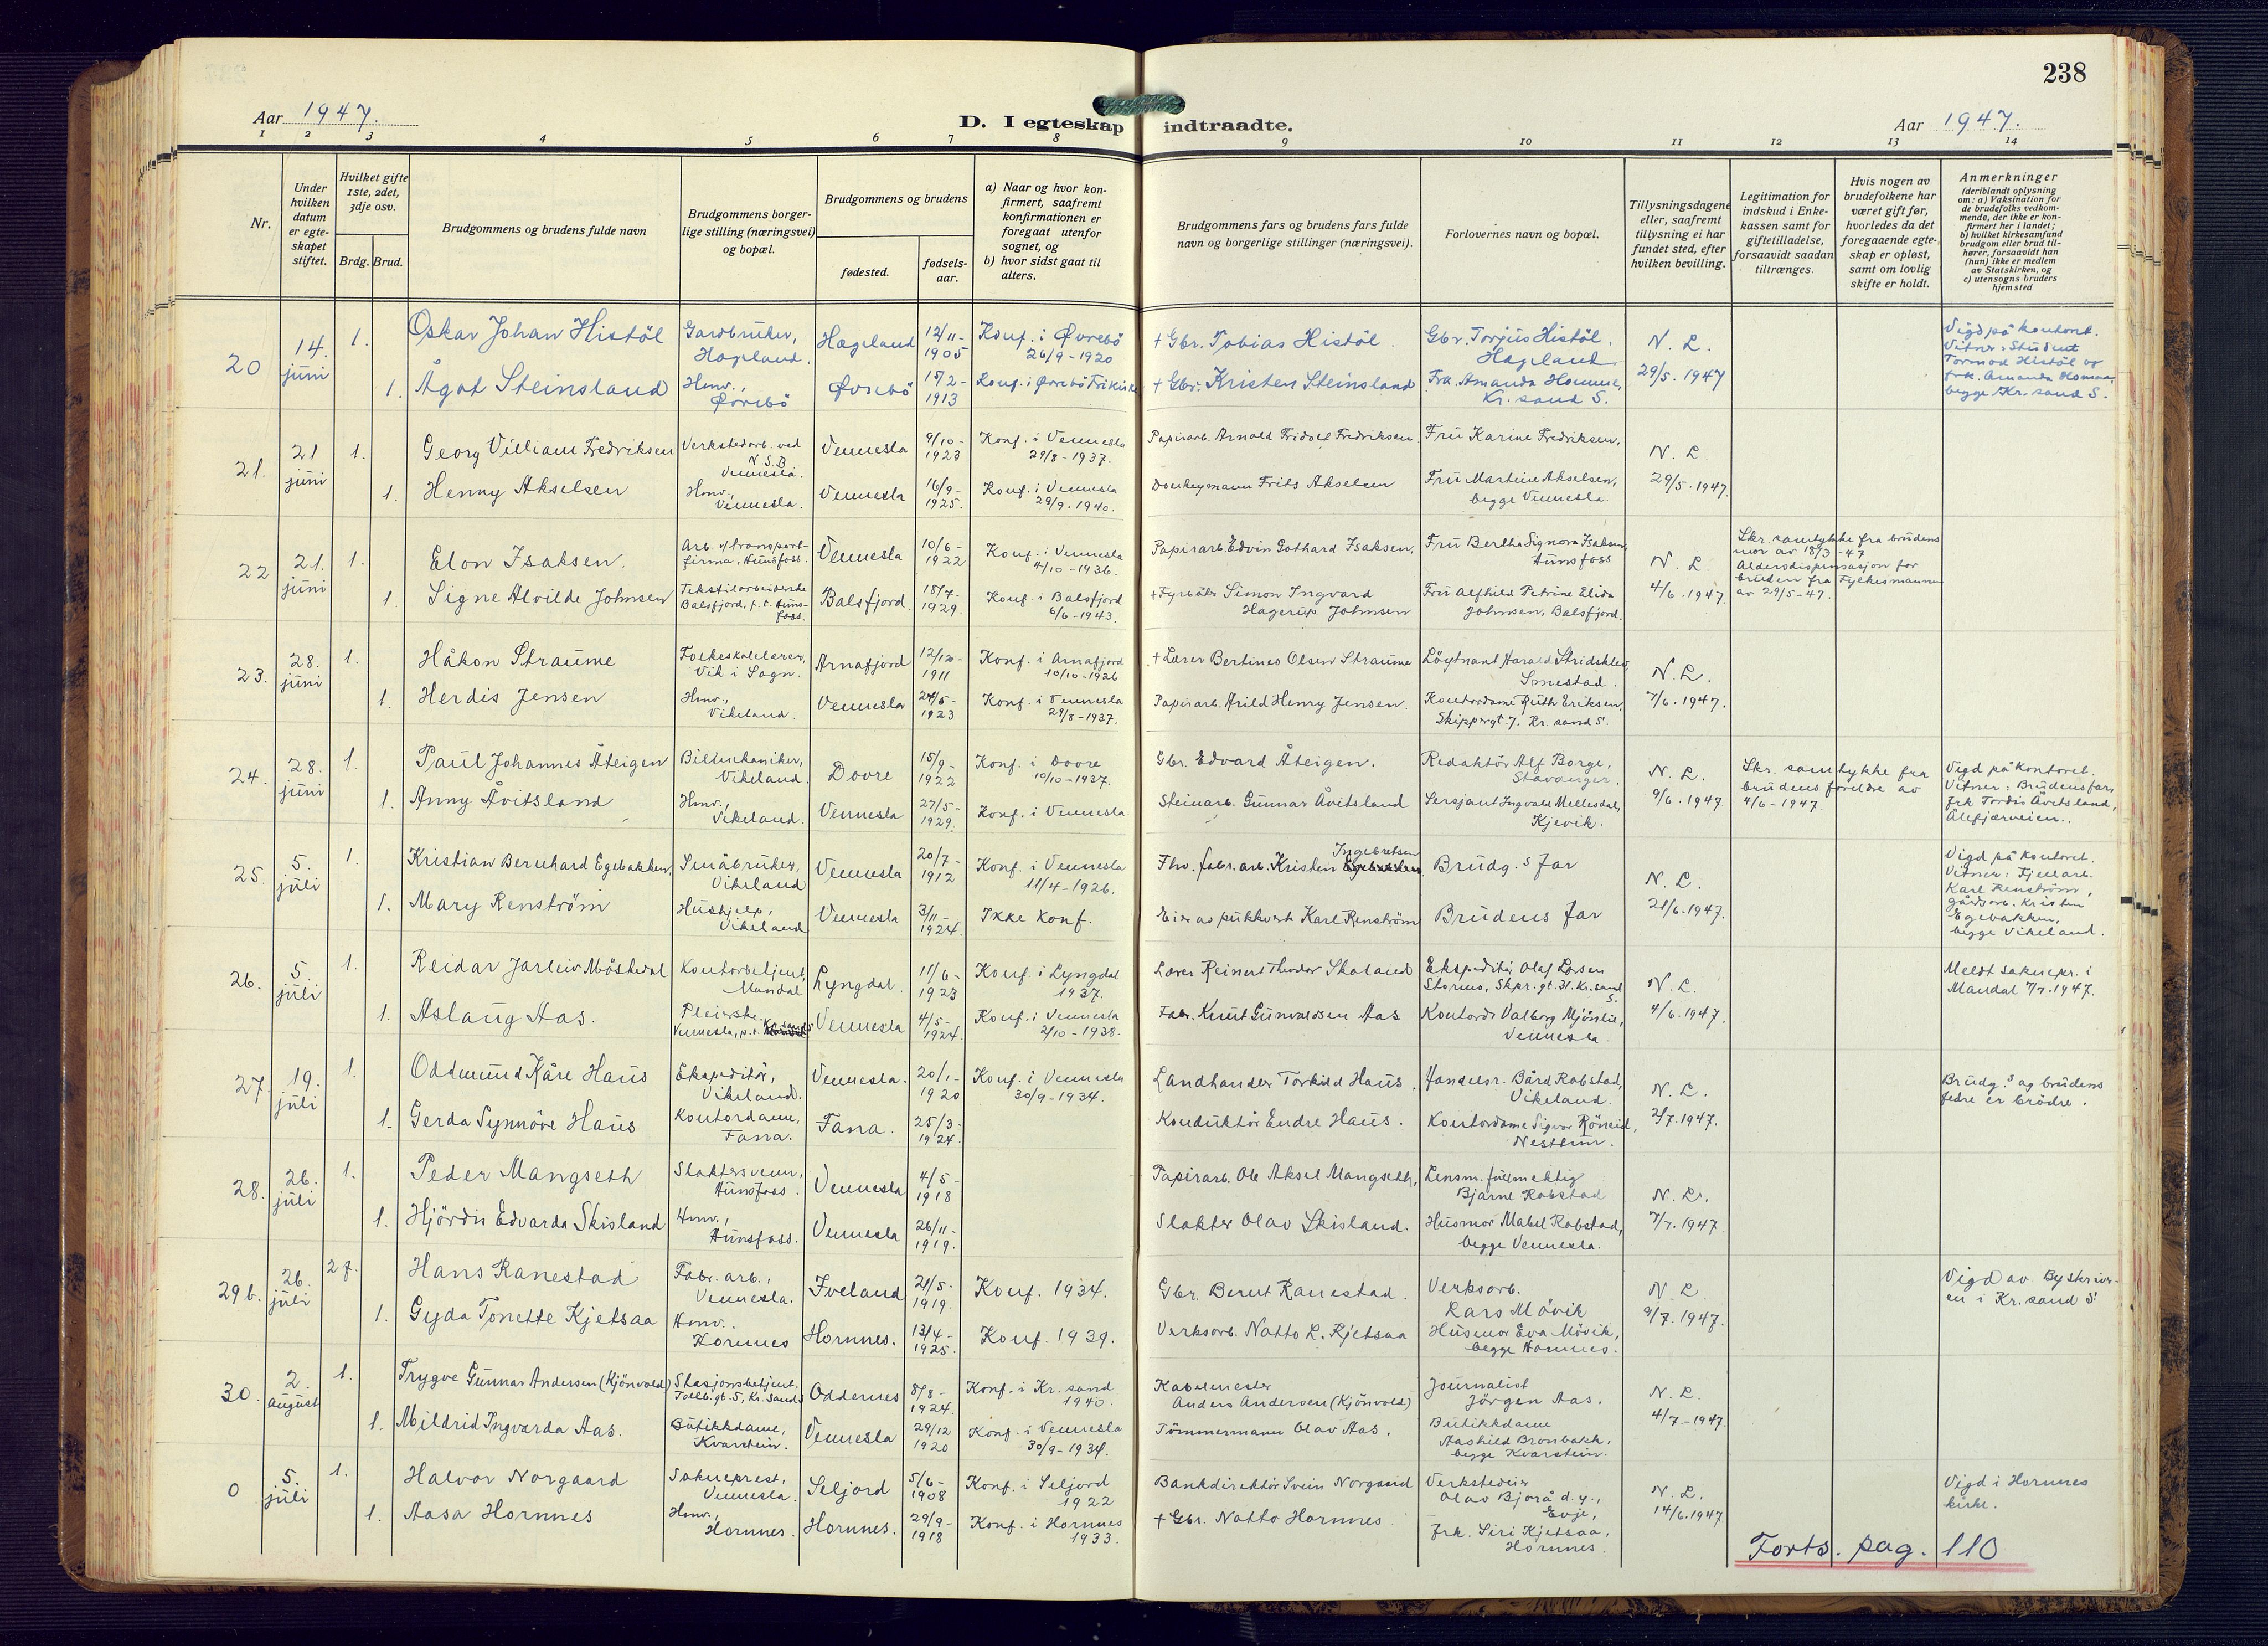 238
Aar 1947.
D. I egteskap indtraadte.
Aar 1947.
1 2 3 4 5 6 7 8 9 10 11 12 13 14
Nr.
Under hvilken datum er egteskapet stiftet.
Hvilket gifte 1ste, 2det, 3dje osv.
Brdg. Brud.
Brudgommens og brudens fulde navn
Brudgommens borgerlige stilling (næringsvei) og bopæl.
Brudgommens og brudens
fødested.
fødselsaar.
a) Naar og hvor konfirmert, saafremt konfirmationen er foregaat utenfor sognet, og
b) hvor sidst gaat til alters.
Brudgommens fars og brudens fars fulde navn og borgerlige stillinger (næringsvei).
Forlovernes navn og bopæl.
Tillysningsdagene eller, saafremt tillysning ei har fundet sted, efter hvilken bevilling.
Legitimation for indskud i Enkekassen samt for giftetilladelse, forsaavidt saadan tiltrænges.
Hvis nogen av brudefolkene har været gift før, hvorledes da det foregaaende egteskap er opløst, samt om lovlig skifte er holdt.
Anmerkninger
(deriblandt oplysning om: a) Vaksination for de brudefolks vedkommende, der ikke er konfirmert her i landet; b) hvilket kirkesamfund brudgom eller brud tilhører, forsaavidt han (hun) ikke er medlem av Statskirken, og c) utensogns bruders hjemsted
20 14. juni 1. Oskar Johan Histöl Gardbruker, Hægeland. Hægeland 12/11-1905 Konf. i Øvrebö 26/9-1920 + Gbr. Tobias Histöl. Gbr. Torjus Histöl. Hægeland N. L. 29/5. 1947 Vigd på kontoret. Vitner: Student Tormod Histöl og frk. Amanda Homme, begge Kr.sand S.
1. Ågot Steinsland Hmv., Øvrebö Øvrebö 15/2-1913 Konf. i Øvrebö Frikirke + Gbr. Kristen Steinsland Frk. Amanda Homme, Kr. sand S.
21. 21 juni 1. Georg Villiam Fredriksen Verkstedarb. ved N.S.B Vennesla. Vennesla 9/10-1923 Konf. i Vennesla 29/8-1937. Papirarb. Arnold Fridolf Fredriksen. Fru Karine Fredriksen, N. L 29/5. 1947.
1. Henny Akselsen Hmv., Vennesla. Vennesla 16/9-1925. Konf. i Vennesla 29/9. 1940. Donkeymann Frits Akselsen Fru Martine Akselsen, begge Vennesla
22 21. juni 1. Elon Isaksen. Arb. v/transportfirma, Hunsfoss. Vennesla 10/6-1922 Konf. i Vennesla 4/10-1936. Papirarb. Edvin Gothard Isaksen. Fru Bertha Signora Isaksen, Hunsfoss N. L. 4/6. 1947. Skr. samtykke fra brudens mor av 18/3-47 Aldersdispensasjon for bruden fra Fylkesmannen av 29/5-47.
1. Signe Alvilde Johnsen Tekstilarbeiderske Balsfjord, p.t. Hunsfoss. Balsfjord 18/4-1929. Konf. i Balsfjord 6/6-1943. + Fyrböter Simon Ingvard Hagerup Johnsen Fru Alfhild Petrine Elida Johnsen, Balsfjord.
23. 28. juni 1. Håkon Straume Folkeskolelærer, Vik i Sogn. Arnafjord 12/12-1911 Konf. i Arnafjord 10/10-1926 + Lærer Bertines Olsen Straume Löytnant Harald Stridsklev, Smestad. N. L. 7/6. 1947.
1. Herdis Jensen Hmv., Vikeland. Vennesla 24/5-1923 Konf. i Vennesla 29/8-1937. Papirarb. Arild Henry Jensen. Kontordame Ruth Eriksen, Skippergt. 7. Kr. sand S.
24. 28. juni 1. Paul Johannes Åteigen Bilmekaniker, Vikeland. Dovre 15/9-1922 Konf. i Dovre 10/10-1937. Gbr. Edvard Åteigen. Redaktör Alf Borge, Stavanger. N. L. 9/6. 1947. Skr. samtykke fra brudens foreldre av 4/6-1947. Vigd på kontoret. Vitner: Brudens far, frk. Tordis Åvitsland, Ålefjærveien.
1. Anny Åvitsland Hmv., Vikeland. Vennesla 27/5-1929. Konf. i Vennesla Steinarb. Gunnar Åvitsland Sersjant Ingvald Mellesdal, Kjevik.
25. 5. juli 1. Kristian Bernhard Egebakken. Småbruker, Vikeland Vennesla 20/7-1912 Konf. i Vennesla 11/4-1926. Fhv. fabr.arb. Kristen Ingebretsen Egebakken Brudg.s far N. L. 21/6. 1947. Vigd på kontoret. Vitner: Fjellarb. Karl Renström, gårdsarb. Kristen Egebakken, begge Vikeland.
1. Mary Renström Hushjelp, Vikeland Vennesla 3/11-1924. Ikke konf. Eier av pukkverk Karl Renström Brudens far
26. 5. juli 1. Reidar Jarleiv Möskedal Kontorbetjent, Mandal Lyngdal. 11/6-1923 Konf. i Lyngdal 1937. Lærer Reinert Theodor Skoland Ekspeditör Olaf Larsen Stormo, Skpr. gt. 31. Kr.sand S. N. L. 4/6. 1947. Meldt soknepr. i Mandal 7/7. 1947.
1. Aslaug Aas. Pleierske. Vennesla, p.t. Kr.sand S Vennesla 4/5-1924. Konf. i Vennesla 2/10-1938. Fabr. Knut Gunvaldsen Aas Kontord. Valborg Mjönlie, Vennesla.
27. 19. juli 1. Oddmund Kåre Haus Ekspeditör, Vikeland. Vennesla. 20/1-1920 Konf. i Vennesla 30/9-1934. Landhandler Torkild Haus, Handelsr. Bård Robstad, Vikeland. N. L. 2/7. 1947. Brudg.s og brudens fedre er brödre.
1. Gerda Synnöve Haus Kontordame, Fana. Fana. 25/3-1924. Konduktör Endre Haus. Kontordame Sigvor Röneid, Nesttun.
28. 26. juli 1. Peder Mangseth Slaktersvenn, Hunsfoss. Vennesla 4/5-1918 Papirarb. Ole Aksel Mangseth, Lensm. fullmektig Bjarne Robstad N. L. 7/7. 1947.
1. Hjördis Edvarda Skisland Hmv., Hunsfoss. Vennesla 26/11-1919. Slakter Olav Skisland. Husmor Mabel Robstad, begge Vennesla.
29 b. 26. juli 2 f. Hans Ranestad Fabr. arb., Vennesla. Iveland 21/5-1919. Konf. 1934. Gbr. Bernt Ranestad. Verksarb. Lars Mövik N. L. 9/7. 1947. Vigd av Byskriveren i Kr.sand S
1. Gyda Tonette Kjetsaa Hmv.. Hornnes Hornnes. 13/4-1925. Konf. 1939. Verksarb. Natto L. Kjetsaa Husmor Eva Mövik, begge Hornnes.
30. 2 august 1. Trygve Gunnar Andersen (Kjönvold) Stasjonsbetjent. Tollb.gt. 5, Kr. sand S Oddernes 8/8-1924. Konf. i Kr. sand 1940. Kabelmester Anders Andersen (Kjönvold) Journalist Jörgen Aas. N. L. 4/7-1947
1. Mildrid Ingvarda Aas. Butikkdame, Kvarstein. Vennesla 29/12 1920 Konf. i Vennesla 30/9-1934. Tömmermann Olav Aas. Butikkdame Aashild Bronbakk. begge Kvarstein.
0 5. juli 1. Halvor Norgaard Sokneprest, Vennesla. Seljord 5/6-1908 Konf. i Seljord 1922 Bankdirektör Svein Norgaard Verkstedeier Olav Bjorå d. y., Evje, N. L. 14/6. 1947 Vigd i Hornnes kirke.
1. Aasa Hornnes Hmv., Hornnes. Hornnes. 29/9-1918 Konf. i Hornnes 1933. + Gbr. Natto Hornnes. frk. Siri Kjetsaa, Hornnes.
Forts. pag. 110